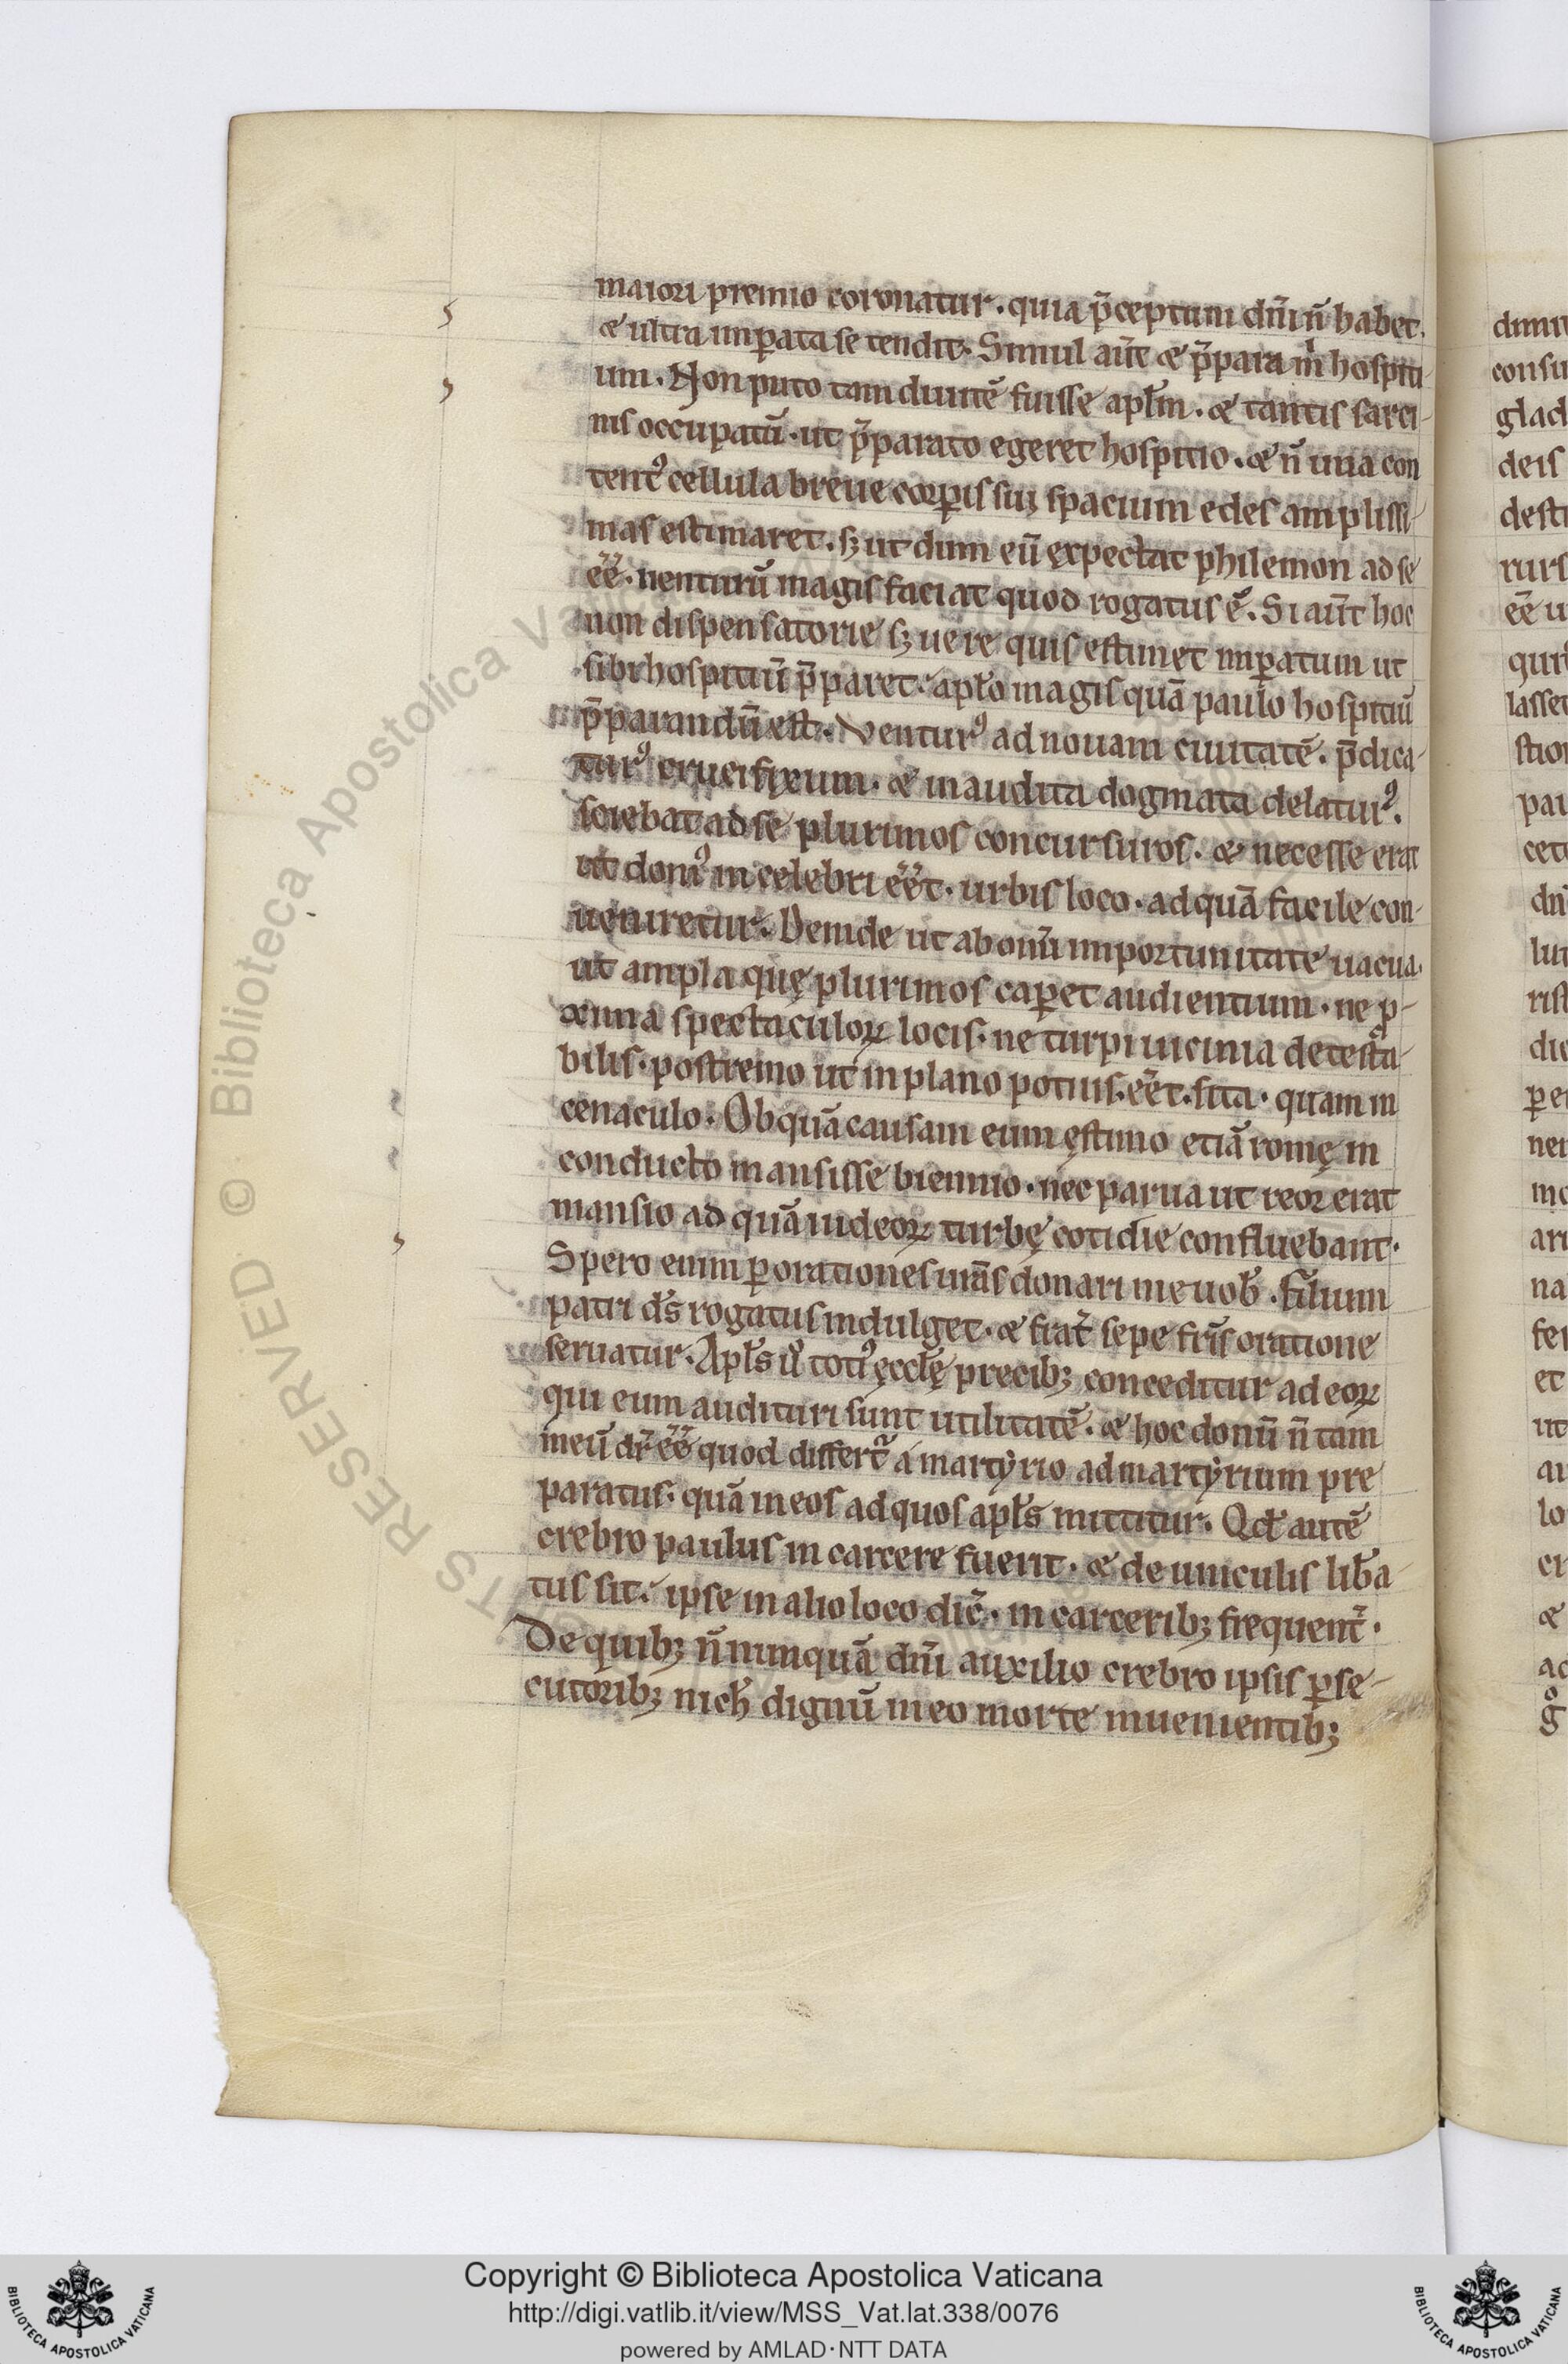 maiori premio coronatur. quia p̄ceptum dn̄i n̄ habet.
& ultra imꝑata se tendit. Simul aūt & p̄para m̄ hospiti-
um. Non puto tam diuitē fuisse apl̄m. & tantis sarci-
nis occupatū. ut p̄parato egeret hospitio. & n̄ una con
tentꝰ cellula breue corꝑis suꝫ spacium edes amplissi-
mas estimaret. sꝫ ut dum eū expectat philemon ad se
eē̄. uenturū magis faciat quod rogatus ē. Si aūt hoc
non dispensatorie sꝫ uere quis estimet imꝑatum ut
sibi hospitiū p̄paret. apl̄o magis quā paulo hospitiū
p̄parandū est. Venturꝰ ad nouam ciuitatē. p̄dica-
turꝰ crucifixum. & inaudita dogmata delaturꝰ.
sciebat ad se plurimos concursuros. & necesse erat
ut domꝰ in celebri eēt. urbis loco. ad quā facile con-
ueniretur. Deinde ut ab omī importunitate uacua.
ut ampla quę plurimos caꝑet audientium. ne ꝓ-
xima spectaculoꝝ locis. ne turpi uicinia detesta-
bilis. postremo ut in plano potius. eēt. sita. quam in
cenaculo. Ob quā causam eum ęstimo etiā romę in
conducto mansisse biennio. nec parua ut reor erat
mansio ad quā iudeoꝝ turbę cotidie confluebant.
Spero enim ꝑ orationes ur̄as donari me uob̄. filium
patri ds̄ rogatus indulget. & frat̄ sepe fr̄is oratione
seruatur. Apl̄s ū totiꝰ ęccl̄ę precibꝫ conceditur ad eoꝝ
qui eum audituri sunt utilitatē. & hoc donū n̄ tam
meū dr̄ eē̄ quod differt̄ a martyrio ad martyrium pre
paratus. quā in eos ad quos apl̄s mittitur. Qd̄ autē
crebro paulus in carcere fuerit. & de uinculis lib̄a-
tus sit. ipse in alio loco dic̄. in carceribꝫ frequent̄.
De quibꝫ n̄nunquā dn̄i auxilio crebro ipsis ꝑse-
cutoribꝫ nich̄ dignū in eo morte inuenientibꝫ
dimit
consu
glad
deis
desti
rurs
eē u
quit
lasset
stion
pau
cete
dn̄
lui
rist
die
ꝑei
nei
mo
ari
na
fer
et
ut
au
lo
cr
&
ac
g
© Biblioteca Apostolica Vaticana
RESERVED
Copyright © Biblioteca Apostolica Vaticana
http://digi.vatlib.it/view/MSS_Vat.lat.338/0076
powered by AMLAD·NTT DATA
BIBLIOTECA APOSTOLICA VATICANA
BIBLIOTECA APOSTOLICA VATICANA